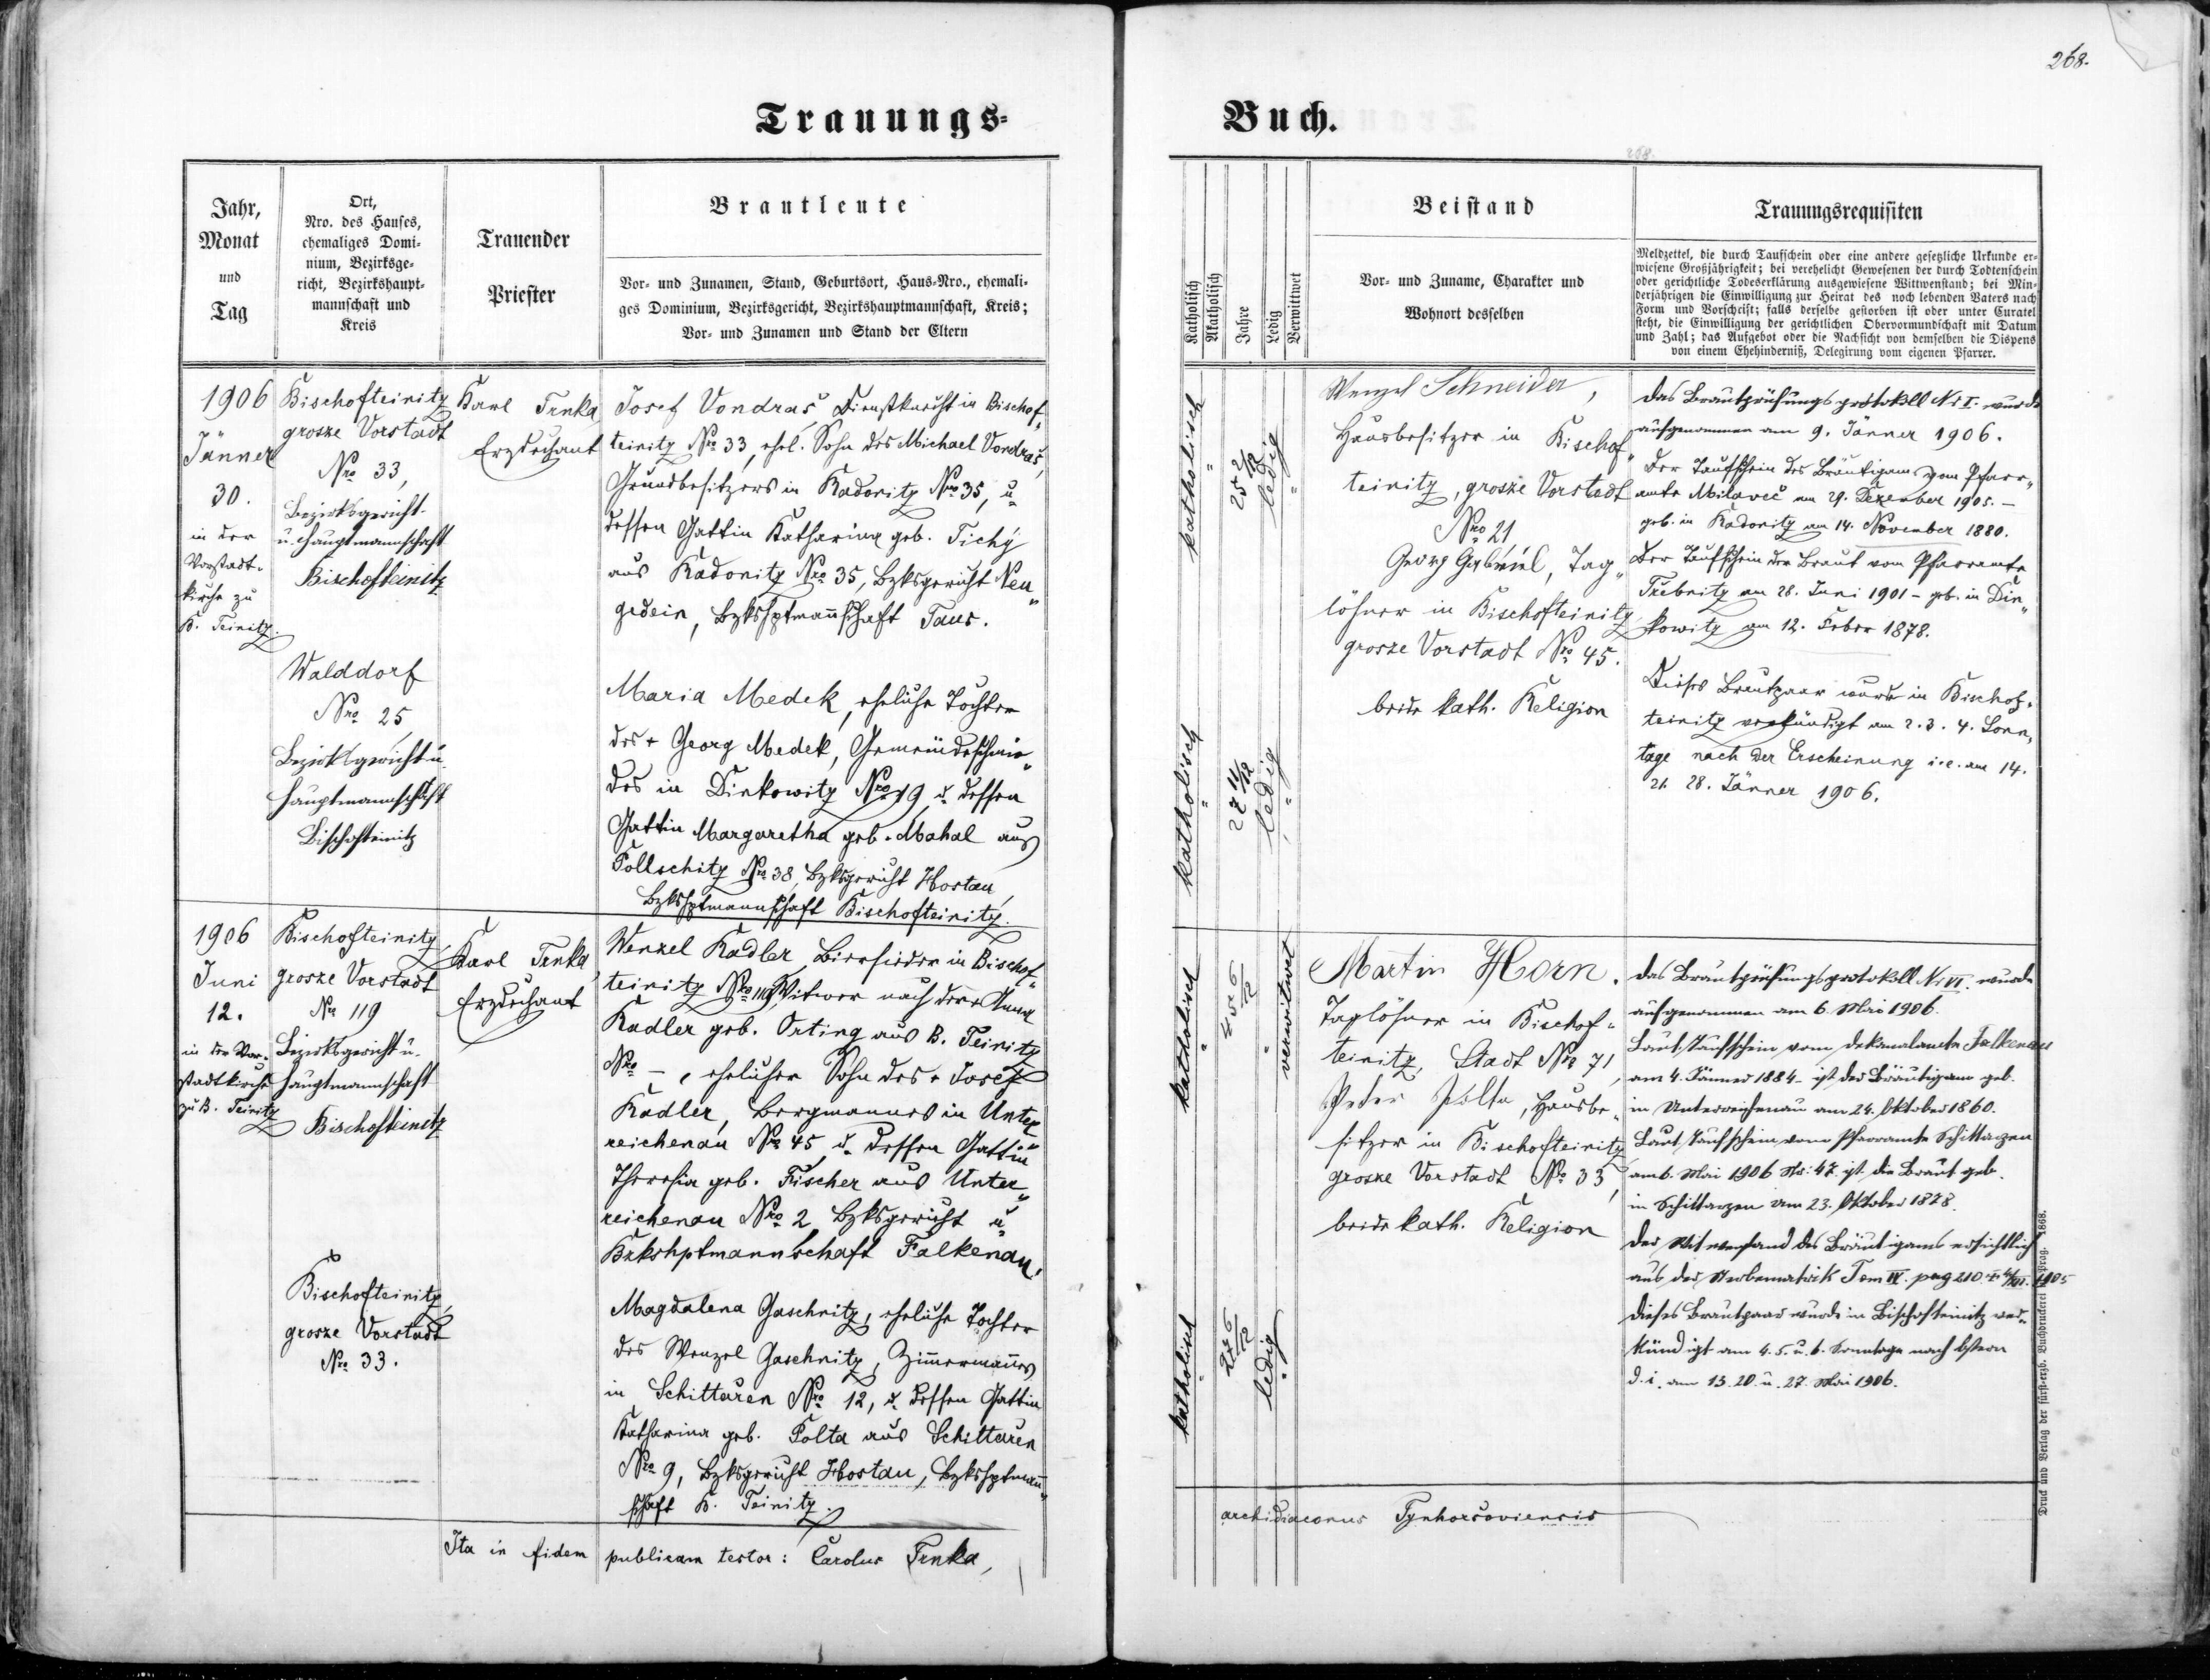 268.
Trauungs=
Buch.
268.
Jahr,
Monat
und
Tag
Ort,
Nro. des Hauses,
ehemaliges Domi-
nium, Bezirksge-
richt, Bezirkshaupt-
mannschaft und
Kreis
Trauender
Priester
Brautleute
Vor- und Zunamen, Stand, Geburtsort, Haus-Nro., ehemali-
ges Dominium, Bezirksgericht, Bezirkshauptmannschaft, Kreis;
Vor- und Zunamen und Stand der Eltern
Katholisch
Akatholisch
Jahre
Ledig
Verwittwet
Beistand
Vor- und Zuname, Charakter und
Wohnort desselben
Trauungsrequisiten
Meldzettel, die durch Taufschein oder eine andere gesetzliche Urkunde er-
wiesene Großjährigkeit; bei verehelicht Gewesenen der durch Todtenschein
oder gerichtliche Todeserklärung ausgewiesene Wittwenstand; bei Min-
derjährigen die Einwilligung zur Heirat des noch lebenden Vaters nach
Form und Vorschrift; falls derselbe gestorben ist oder unter Curatel
steht, die Einwilligung der gerichtlichen Obervormundschaft mit Datum
und Zahl; das Aufgebot oder die Nachsicht von demselben die Dispens
von einem Ehehinderniß, Delegirung vom eigenen Pfarrer.
1906
Jänner
30.
in der
Vorstadt-
kirche zu
B. Teinitz.
Bischofteinitz
grosze Vorstadt
Nro 33,
Bezirksgericht-
u. Hauptmannschaft
Bischofteinitz
Walddorf
Nro 25,
Bezirksgericht u.
Hauptmannschaft
Bischofteinitz
Karl Trnka
Erzdechant
Josef Vondraš, Dienstknecht in Bischof„
teinitz Nro 33, ehel. Sohn des Michael Vondraš,
Grundbesitzers in Kadonitz Nro 35, u
dessen Gattin Katharina geb. Tichý
aus Kadonitz Nro 35, Bzksgericht Neu„
gedein, Bzkshptmannschaft Taus.
Maria Medek, eheliche Tochter
des + Georg Medek, Gemeindeschmie„
des in Dinkowitz Nro 19 u. dessen
Gattin Margaretha geb. Mahal aus
Pollschitz Nro 38, Bzksgericht Hostau,
Bzkshptmannschaft Bischofteinitz.
katholisch
"
25 2/12
ledig
"
katholisch
"
27 11/12
ledig
"
Wenzel Schneider,
Hausbesitzer in Bischof„
teinitz, grosze Vorstadt
Nro 21,
Georg Gabriel, Tag„
löhner in Bischofteinitz
grosze Vorstadt Nro 45.
beide kath. Religion
Das Brautprüfungsprotokoll Nr I. wurde
aufgenommen am 9. Jänner 1906.
Der Taufschein des Bräutigams vom Pfarr„
amte Milaveč am 29. Dezember 1905. –
geb. in Kadonitz am 14. November 1880.
Der Taufschein der Braut vom Pfarramte
Trebnitz am 28. Juni 1901 – geb. in Din„
kowitz am 12. Feber 1878.
Dieses Brautpaar wurde in Bischof„
teinitz verkündigt am 2. 3. 4. Sonn„
tage nach der Erscheinung i. e. am 14.
21. 28. Jänner 1906.
1906
Juni
12.
in der Vor-
stadtkirche
zu B. Teinitz
Bischofteinitz,
grosze Vorstadt
Nro 119
Bezirksgericht u.
Hauptmannschaft
Bischofteinitz
Bischofteinitz,
grosze Vorstadt
Nro 33.
Karl Trnka,
Erzdechant
Wenzel Kadler, Biersieder in Bischof„
teinitz Nro 119, Witwer nach der + Anna
Kadler geb. Orting aus B. Teinitz
Nro –, ehelicher Sohn des + Josef
Kadler, Bergmannes in Unter„
reichenau Nro 45 u. dessen Gattin
Theresia geb. Fischer aus Unter„
reichenau Nro 2 Bzksgericht u
Bzkshptmannschaft Falkenau.
Magdalena Gaschnitz, eheliche Tochter
des Wenzel Gaschnitz, Zimmermannes
in Schittaren Nro 12, u. dessen Gattin
Katharina geb. Polta aus Schittaren
Nro 9, Bzksgericht Hostau, Bzkshptmann„
schaft B. Teinitz.
katholisch
"
45 6/12
"
verwitwet
katholisch
"
27 6/12
ledig
"
Martin Horn.
Taglöhner in Bischof„
teinitz, Stadt Nro 71,
Peter Polta, Hausbe„
sitzer in Bischofteinitz
grosze Vorstadt Nro 33,
beide kath. Religion
Das Brautprüfungsprotokoll Nr VI. wurde
aufgenommen am 6. Mai 1906.
Laut Taufschein vom Dekanalamte Falkenau
am 4. Jänner 1884 – ist der Bräutigam geb.
in Unterreichenau am 24. Oktober 1860.
Laut Taufschein vom Pfarramte Schittarzen
am 6. Mai 1906 Nr: 47. ist die Braut geb.
in Schittarzen am 23. Oktober 1878.
Der Witwenstand des Bräutigams ersichtlich
aus der Sterbematrik Tom IV. pag 210
Dieses Brautpaar wurde in Bischofteinitz ver„
kündigt am 4. 5. u. 6. Sonntage nach Ostern
d. i. am 13. 20. u. 27. Mai 1906.
Ita in fidem publicam testor: Carolus Trnka,
archidiaconus Tynhoršoviensis
Druck und Verlag der fürst-erzb. Buchdruckerei Prag. 1868.